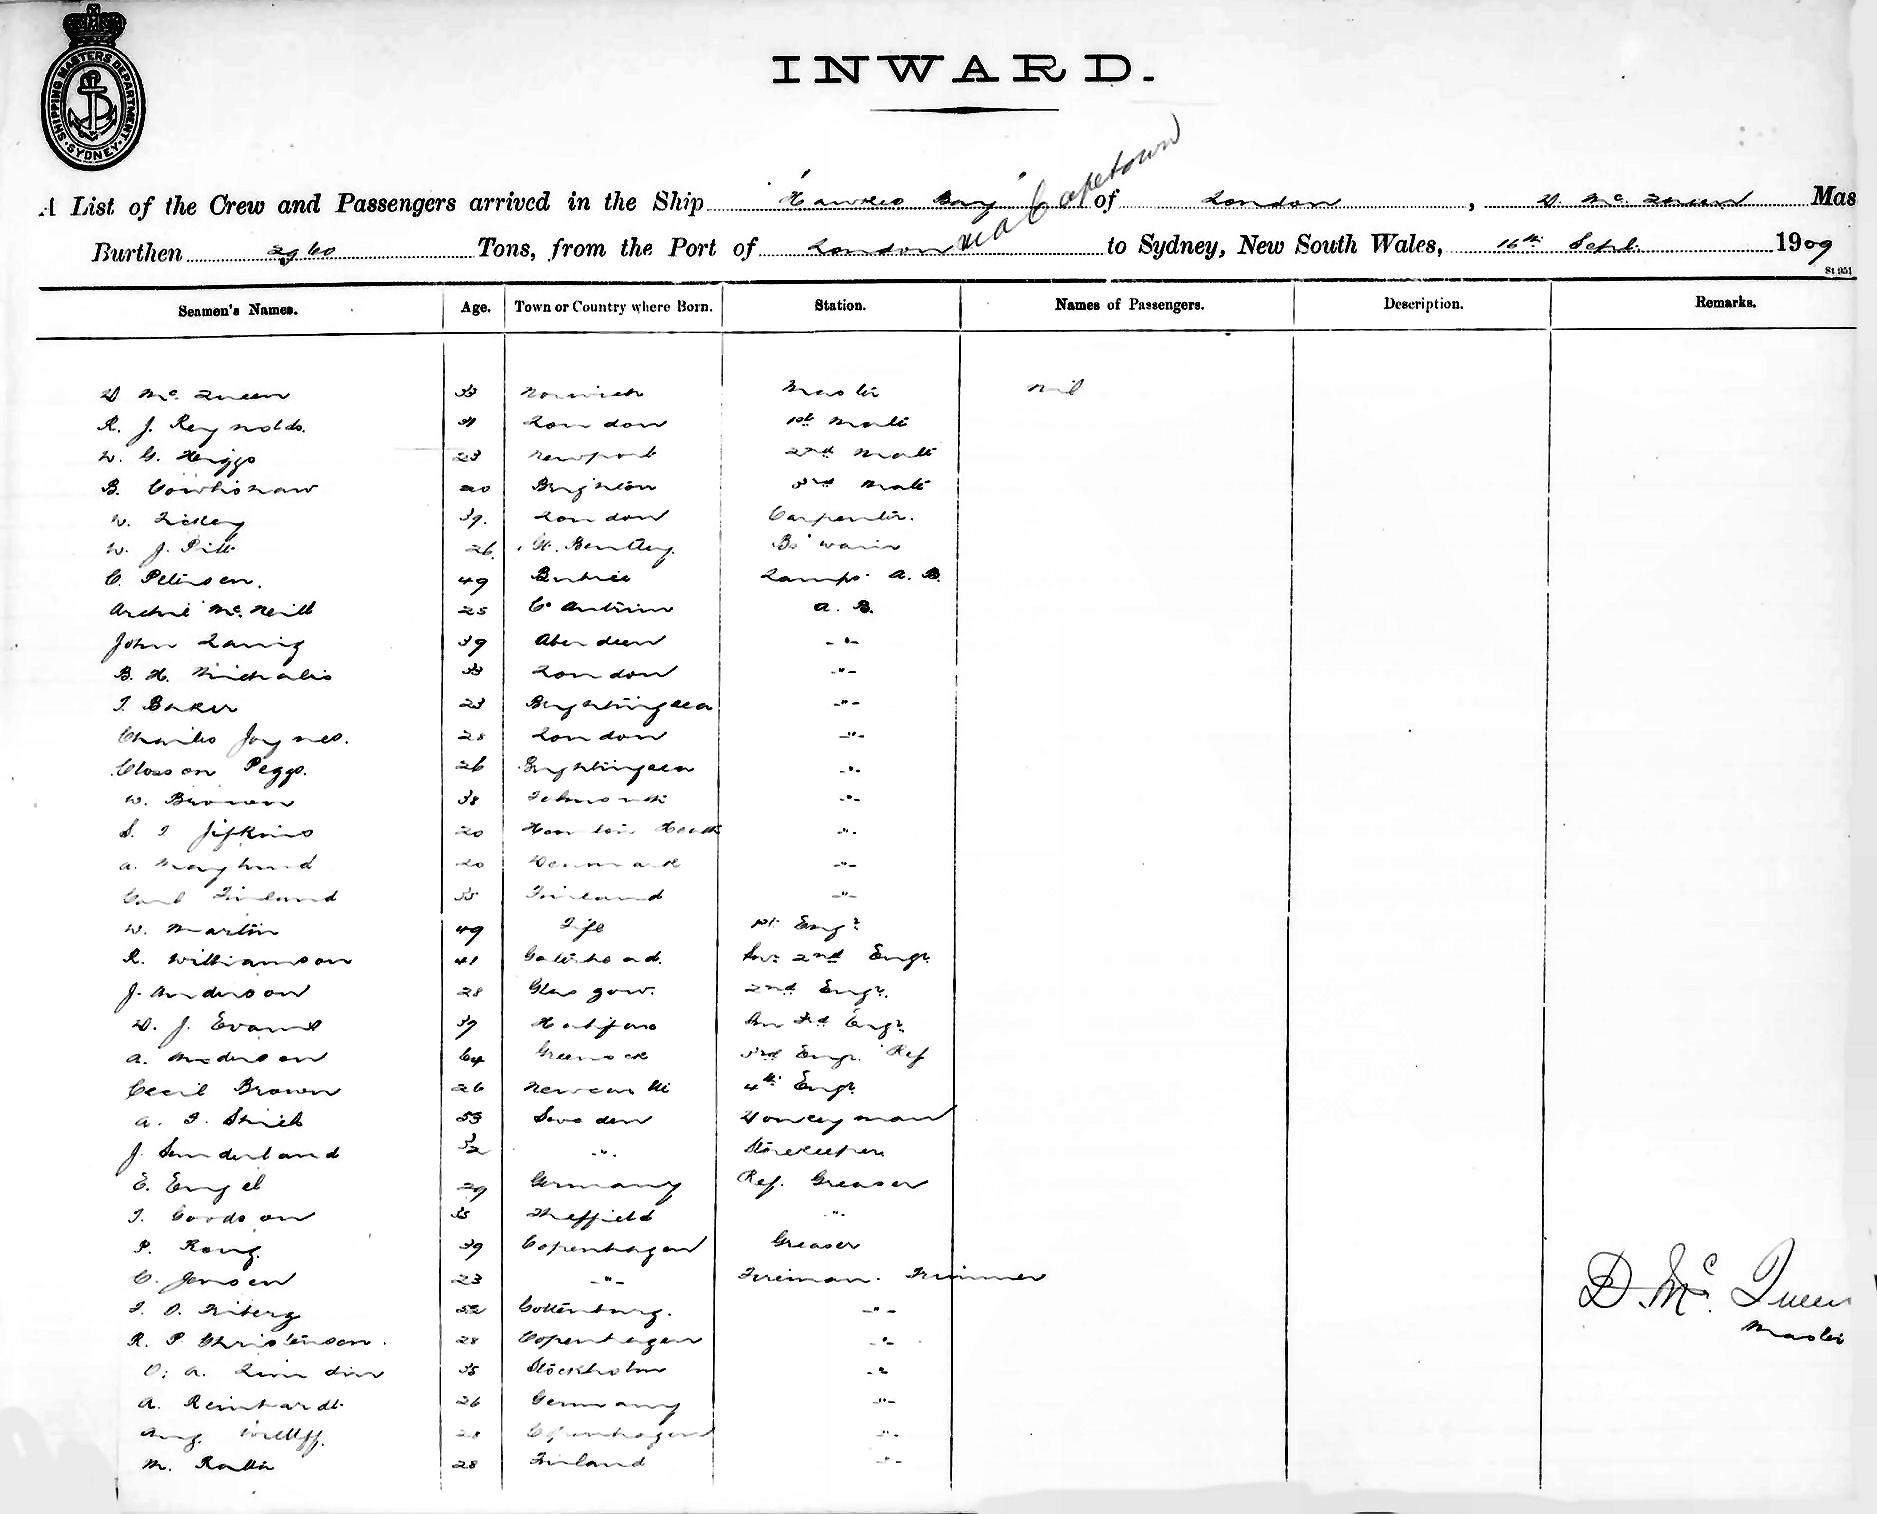 SHIPPING MASTERS DEPARTMENT · SYDNEY ·
INWARD.
A List of the Crew and Passengers arrived in the Ship "Hawkes Bay" of London, D. Mc. Queen Mas
via Capetown
Burthen Tons, from the Port of London to Sydney, New South Wales, 16th Sept. 1909
St 951
Seamen's Names. Age. Town or Country where Born. Station. Names of Passengers. Description. Remarks.
D Mc. Queen 33 Norwich Master Nil
R. J. Reynolds. 31 London 1st Mate
W. G. Heiggs 23 Newport 2nd Mate
B. Cowlishaw 20 Brighton 3rd Mate
W. 39. London Carpenter.
W. J. Pitt 26. Gt. Bentley.
C. Petersen. 49 Lamps. A.B.
Archie McNeill 25 Co Antrim A.B.
John Laing 39 Aberdeen - " -
B. H. 33 London - " -
T. Baker 23 Brightlingsea - " -
Charles Joynes. 28 London - " -
Closson Peggs. 26 Brightlingsea - " -
W. Brown 38 - " -
S. T Jifkins 20 - " -
A. 20 Denmark - " -
Carl Finland 35 Finland - " -
W. Martin 49 Fife 1st Engr
R. Williamson 41 Gateshead. 2nd Engr.
J. Anderson 28 Glasgow. 2nd Engr.
D. J. Evans 39 3rd Engr.
A. Anderson 64 Greenock 3rd Engr. Ref
Cecil Brown 26 Newcastle 4th Engr.
A. F. 53 Sweden Donkeyman
J. Sunderland 32 - " - Storekeeper
E. Engel 29 Germany Ref. Greaser
T. 35 Sheffield - " -
P. 39 Copenhagen Greaser
C. Jensen 23 - " - Fireman. Trimmer
Friberg 52 Gottenburg. - " -
R. P Christensen. 28 Copenhagen - " -
O. A. Lindin 35 Stockholm - " -
A. Reinhardt 26 Germany - " -
Aug. 28 Copenhagen - " -
M. 28 Finland - " -
D. Mc. Queen
Master